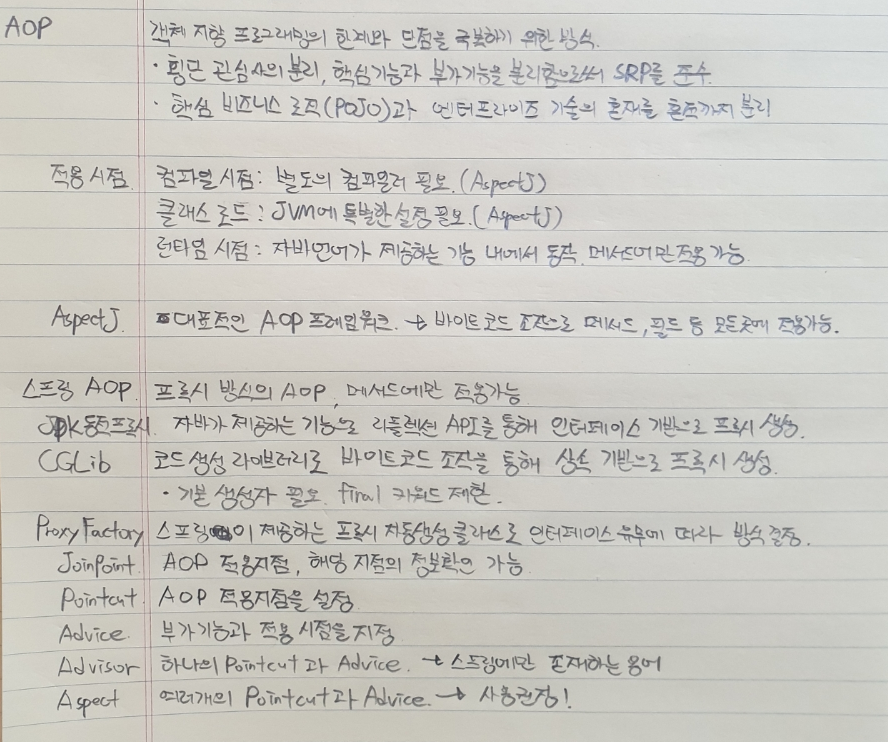 AOP 객체 지향 프로그래밍의 한계와 단점을 극복하기 위한 방식.
· 횡단 관심사의 분리, 핵심기능과 부가기능을 분리함으로써 SRP를 준수.
· 핵심 비즈니스 로직(POJO)과 엔터프라이즈 기술의 혼재를 분리
적용시점. 컴파일 시점: 별도의 컴파일러 필요. (AspectJ)
클래스 로드: JVM에 특별한 설정 필요. (AspectJ)
런타임 시점: 자바언어가 제공하는 기능 내에서 동작. 메서드에만 적용가능.
AspectJ. 대표적인 AOP 프레임워크. → 바이트코드 조작으로 메서드, 필드 등 모든곳에 적용가능.
스프링 AOP. 프록시 방식의 AOP, 메서드에만 적용가능
JDK동적프록시. 자바가 제공하는 기능으로 리플렉션 API를 통해 인터페이스 기반으로 프록시 생성.
CGLib 코드 생성 라이브러리로 바이트코드 조작을 통해 상속 기반으로 프록시 생성.
· 기본 생성자 필요. final 키워드 제한.
ProxyFactory 스프링이 제공하는 프록시 자동생성 클래스로 인터페이스 유무에 따라 방식 결정.
JoinPoint. AOP 적용지점, 해당 지점의 정보확인 가능.
Pointcut. AOP 적용지점을 설정.
Advice. 부가기능과 적용 시점을 지정
Advisor 하나의 Pointcut과 Advice. → 스프링에만 존재하는 용어
Aspect 여러개의 Pointcut과 Advice. → 사용권장!